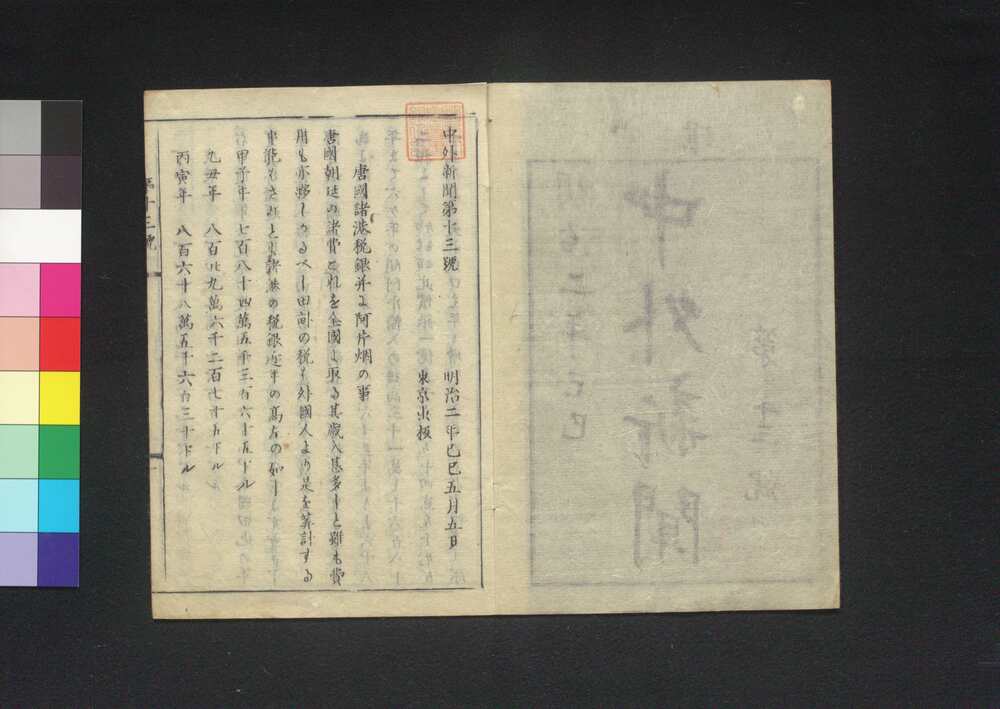 中外新聞第十三號
明治二年己巳五月五日
東京出板
唐國諸港税銀并ニ阿片烟の事
唐國朝廷の諸費これを全國ニ取る其歳入甚多しと雖も費
用も亦夥しかるべし田畝の税ハ外國人より是を算計する
事能ハされとも諸港の税銀近年の高左の如し
甲子年 七百八十四萬五千三百六十五ドルル
乙丑年 八百廿九萬六千二百七十五ドルル
丙寅年 八百六十八萬五千六百三十ドルル
第十三號
明治二年己巳
中外新聞
第十三號